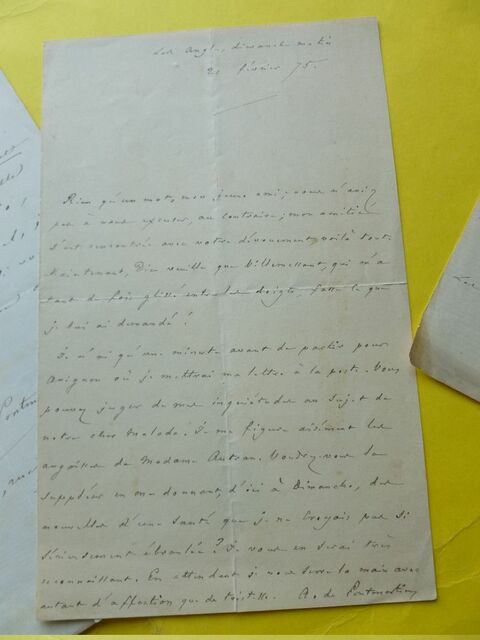 Les Angles, dimanche matin
21 février 75.
Rien qu'un mot, mon jeune ami; vous n'aviez
pas à vous excuser, au contraire; mon amitié
s'est rencontrée avec votre dévouement, voilà tout.
Maintenant, Dieu veuille que Villemessant, qui m'a
tant de fois glissé entre les doigts, fasse ce que
je lui ai demandé!
Je n'ai qu'une minute avant de partir pour
Avignon où je mettrai ma lettre à la poste. Vous
pouvez juger de mon inquiétude au sujet de
notre cher malade. Je me figure aisément les
angoisses de Madame Autran. Voudrez-vous la
suppléer en me donnant, d'ici à Dimanche, des
nouvelles d'une santé que je ne croyais pas si
sérieusement ébranlée? Je vous en serai très
reconnaissant. En attendant je vous serre la main avec
autant d'affection que de tristesse. A. de Pontmartin